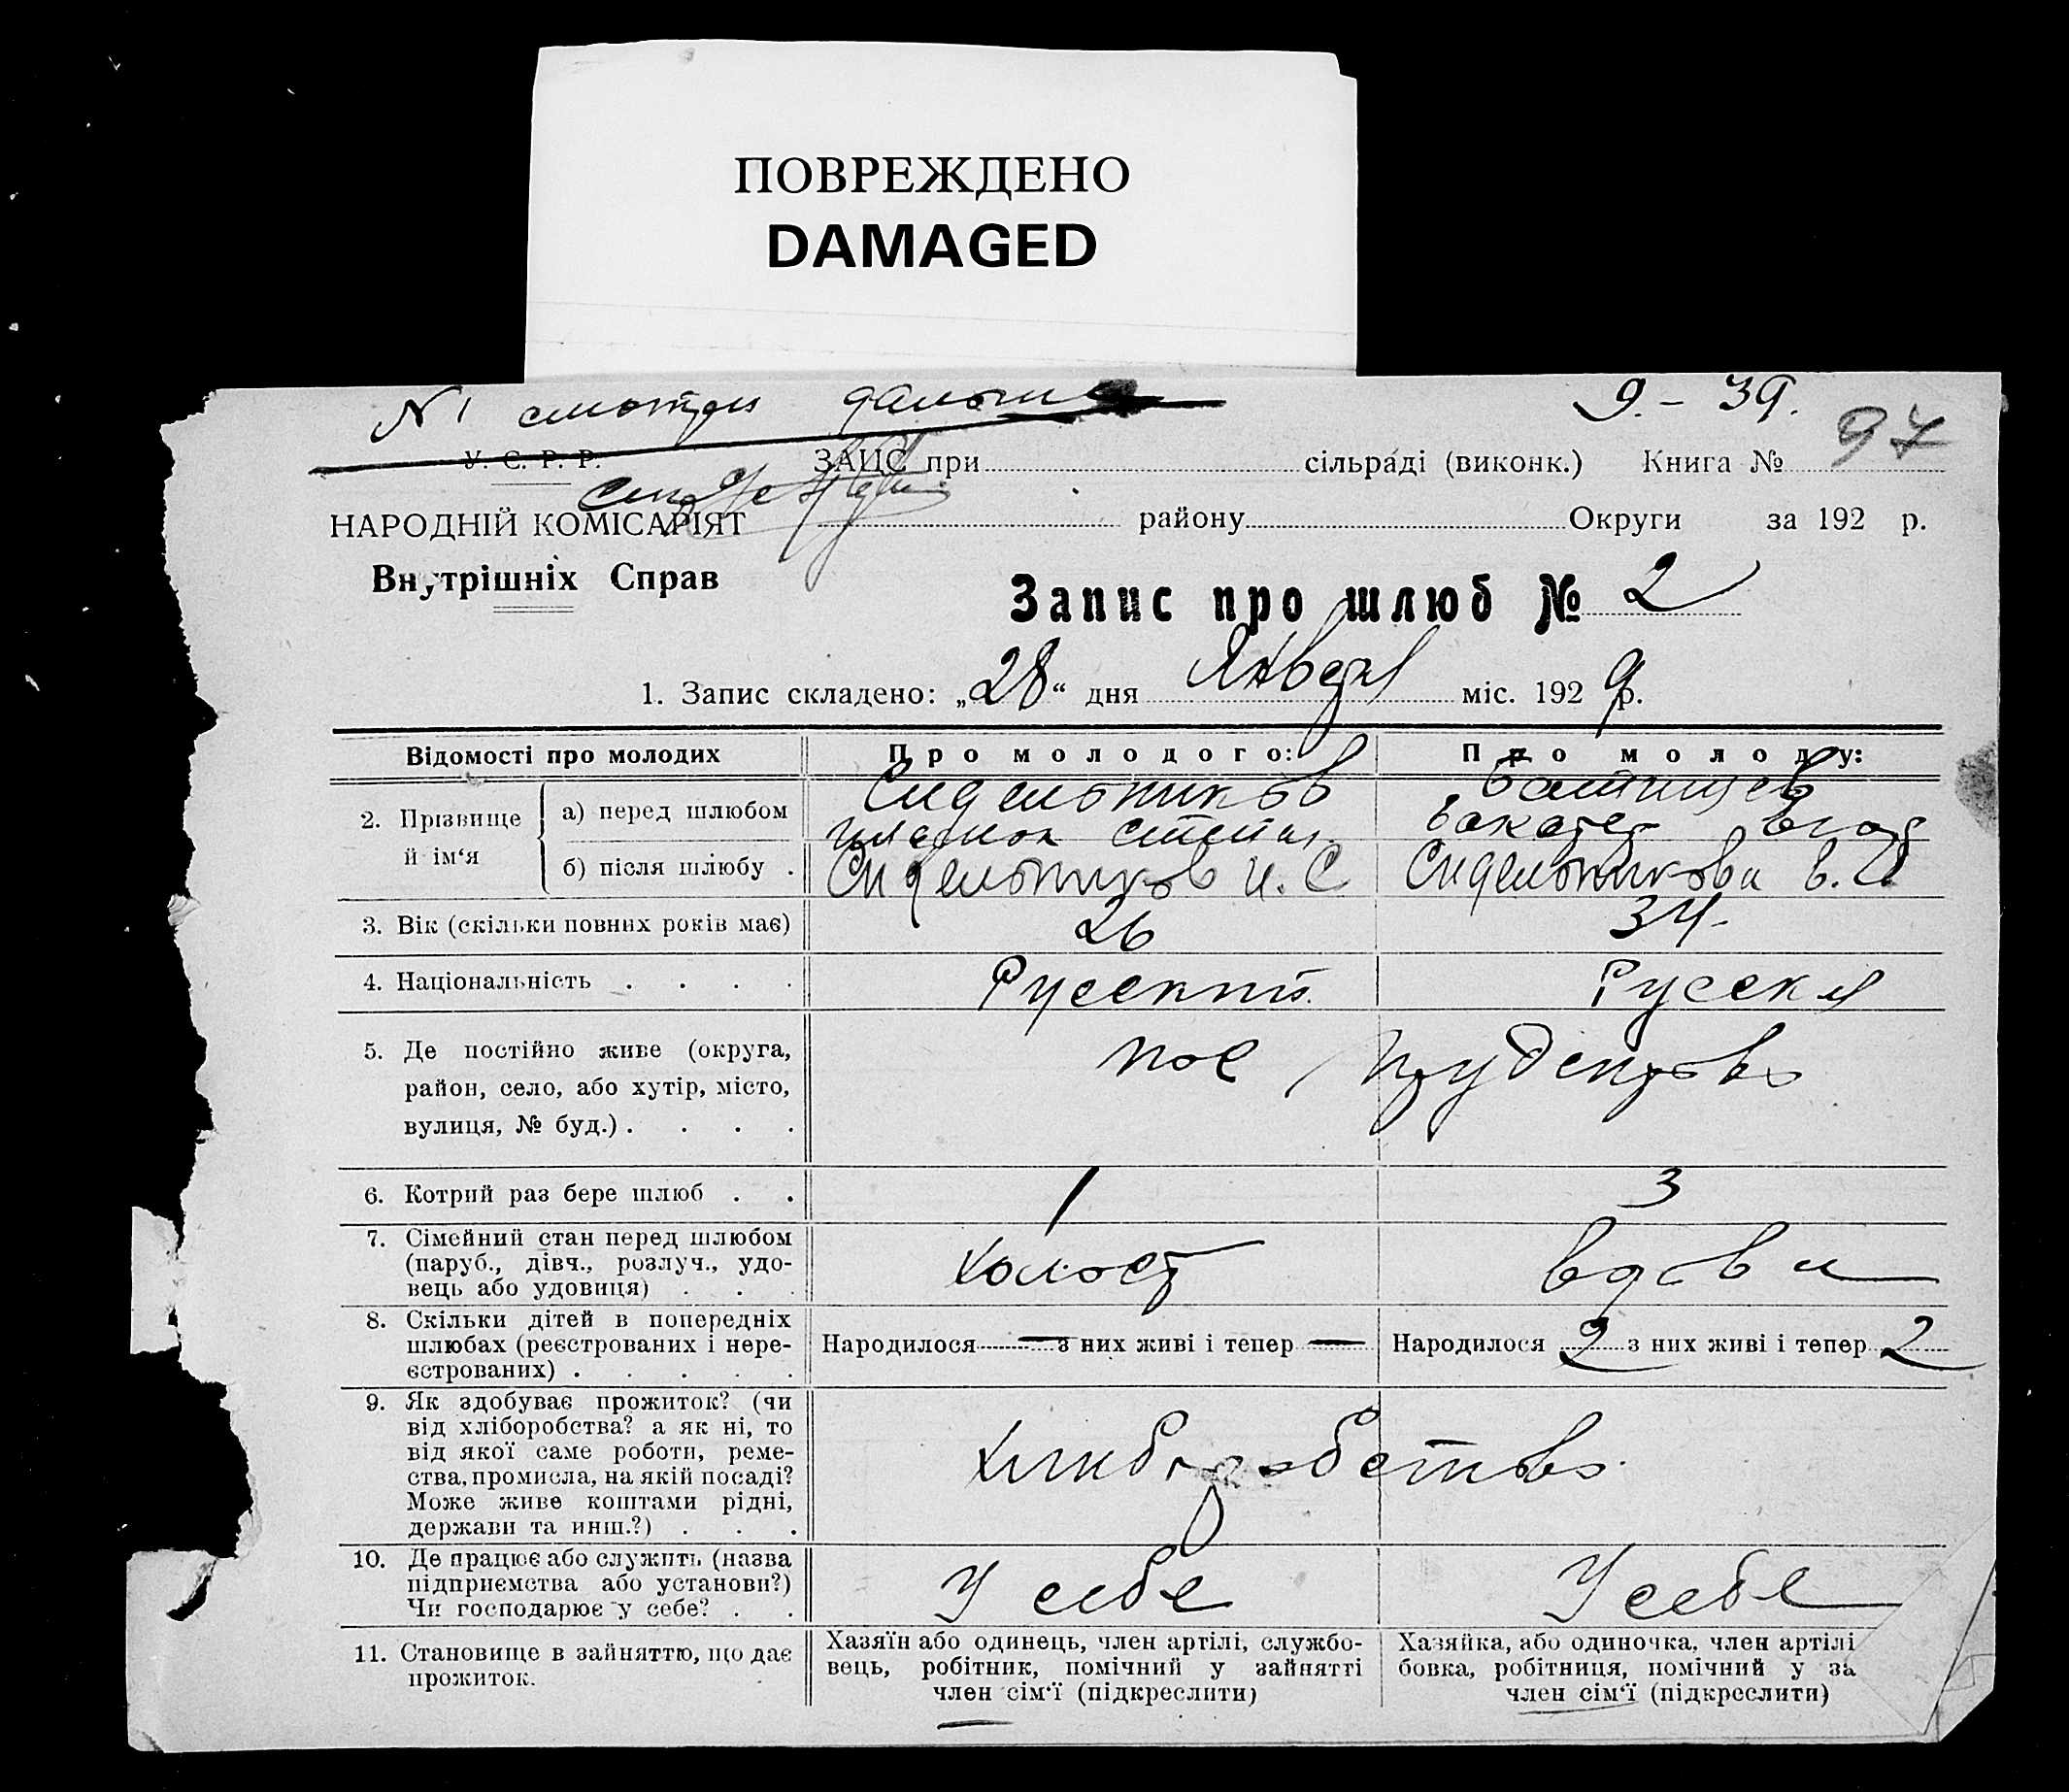 ПОВРЕЖДЕНО
DAMAGED
№ 1 смотри дальше
9. – 39.
97
У. С. Р. Р.
ЗАЦС при сільраді (виконк.) Книга №
НАРОДНІЙ КОМІСАРІЯТ
району Округи за 192 р.
Внутрішніх Справ
Запис про шлюб № 2
1. Запис складено: „28“ дня Января міс. 1929 р.
Відомості про молодих
Про молодого:
Про молоду:
2. Прізвище й ім‘я
а) перед шлюбом
Сидельников
б) після шлюбу .
Сидельников И. С
Сидельникова Е. И
3. Вік (скільки повних років має)
26
34
4. Національність . . . .
Русский
Русская
5. Де постійно живе (округа,
район, село, або хутір, місто,
вулиця, № буд.) . . . .
пос
6. Котрий раз бере шлюб . .
1
3
7. Сімейний стан перед шлюбом
(паруб., дівч., розлуч., удо-
вець або удовиця) . . .
холост
вдова
8. Скільки дітей в попередніх
шлюбах (реєстрованих і нере-
єстрованих) . . . . .
Народилося — з них живі і тепер —
Народилося 2 з них живі і тепер 2
9. Як здобуває прожиток? (чи
від хліборобства? а як ні, то
від якої саме роботи, реме-
ства, промисла, на якій посаді?
Може живе коштами рідні,
держави та инш.?) . . .
хлиборобство
10. Де працює або служить (назва
підприємства або установи?)
Чи господарює у себе? . .
У себе
У себе
11. Становище в зайняттю, що дає
прожиток.
Хазяїн або одинець, член артілі, службо-
вець, робітник, помічний у зайнятті
член сім‘ї (підкреслити)
Хазяйка, або одиночка, член артілі
бовка, робітниця, помічний у за
член сім‘ї (підкреслити)